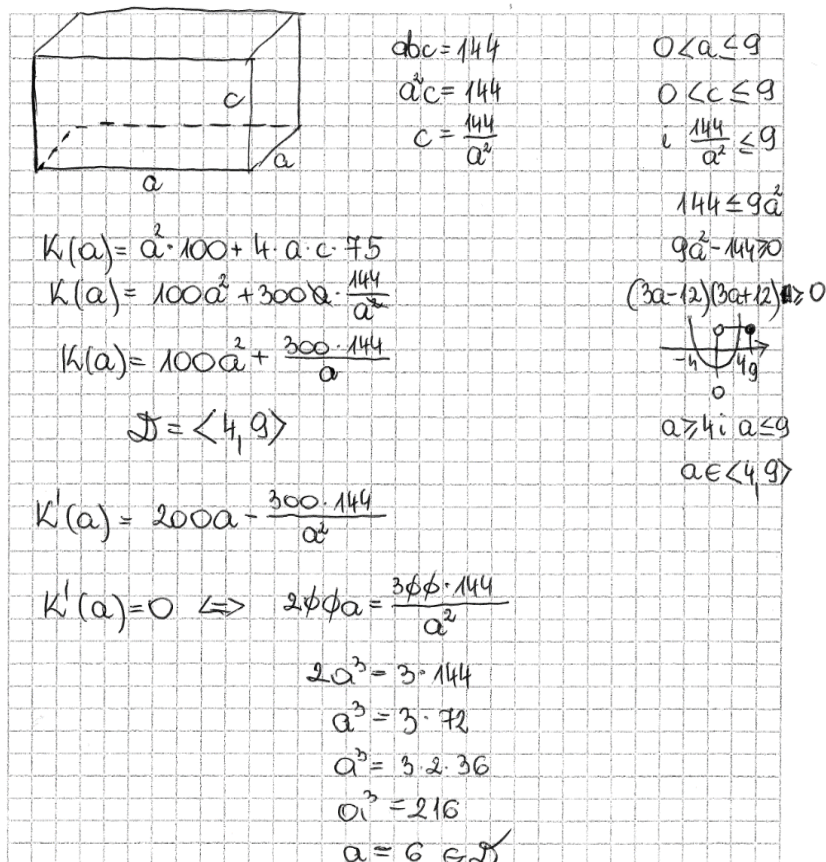 c
a
a
abc = 144
a²c = 144
c = 144/a²
0 < a ≤ 9
0 < c ≤ 9
i 144/a² ≤ 9
144 ≤ 9a²
9a² - 144 ≥ 0
(3a-12)(3a+12) ≥ 0
-4 4 9
0
a ≥ 4 i a ≤ 9
a ∈ <4, 9>
K(a) = a² · 100 + 4 · a · c · 75
K(a) = 100a² + 300a · 144/a²
K(a) = 100a² + 300 · 144/a
D = <4, 9>
K'(a) = 200a - 300 · 144/a²
K'(a) = 0 <=> 200a = 300 · 144/a²
2a³ = 3 · 144
a³ = 3 · 72
a³ = 3 · 2 · 36
a³ = 216
a = 6 ∈ D